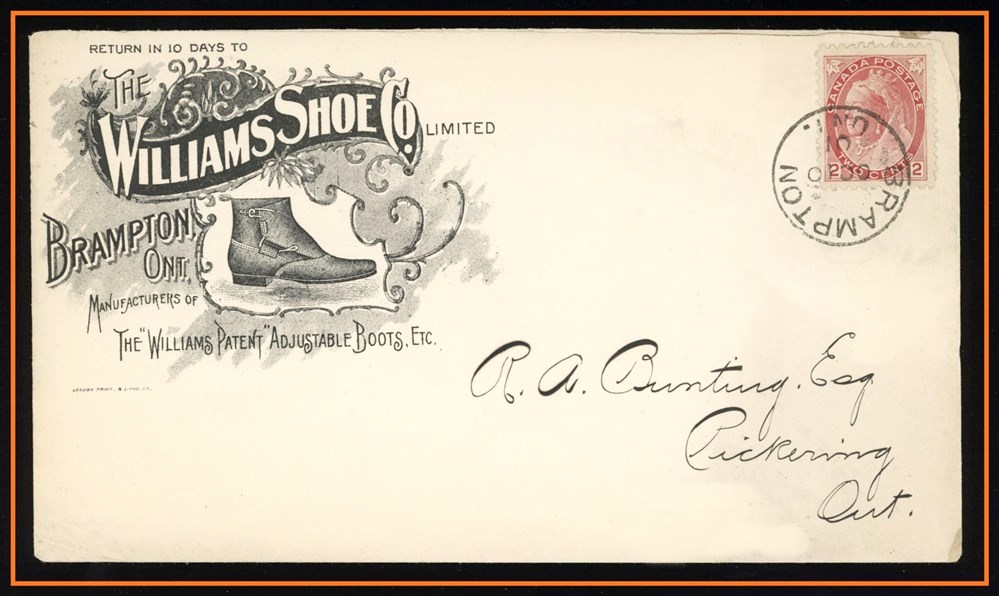 RETURN IN 10 DAYS TO
THE
WILLIAMS SHOE CO.
LIMITED
BRAMPTON
ONT.
MANUFACTURERS OF
THE "WILLIAMS PATENT" ADJUSTABLE BOOTS, ETC.
LONDON PRINT. & LITHO. CO.
CANADA POSTAGE
2 TWO CENTS 2
BRAMPTON
ONT.
R. A. Bunting. Esq
Pickering
Ont.